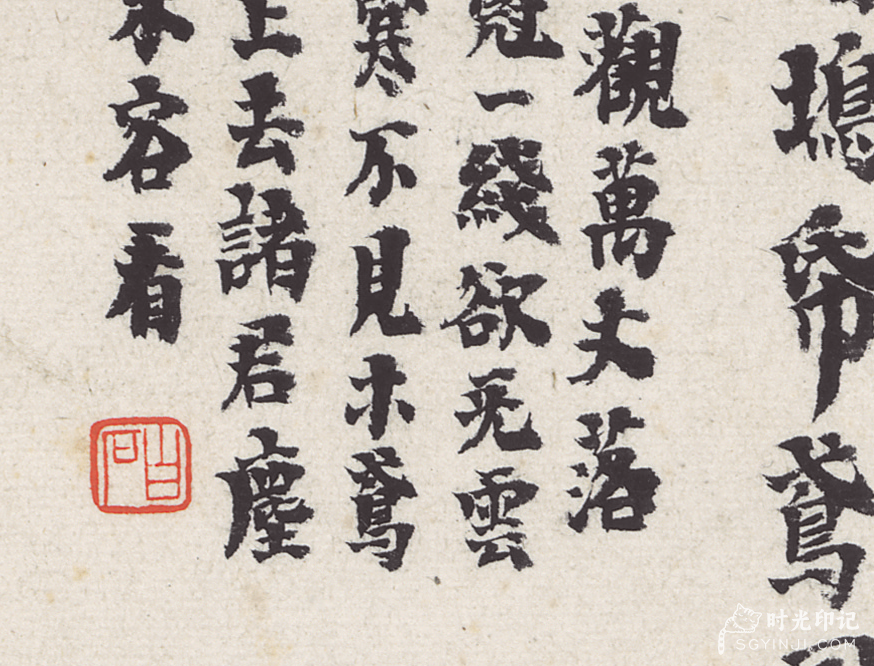 塢帋鳶
觀萬丈落
一綫欲无雲
寒不見木鳶
上去諸君塵
容看
时光印记
SGYINJI.COM